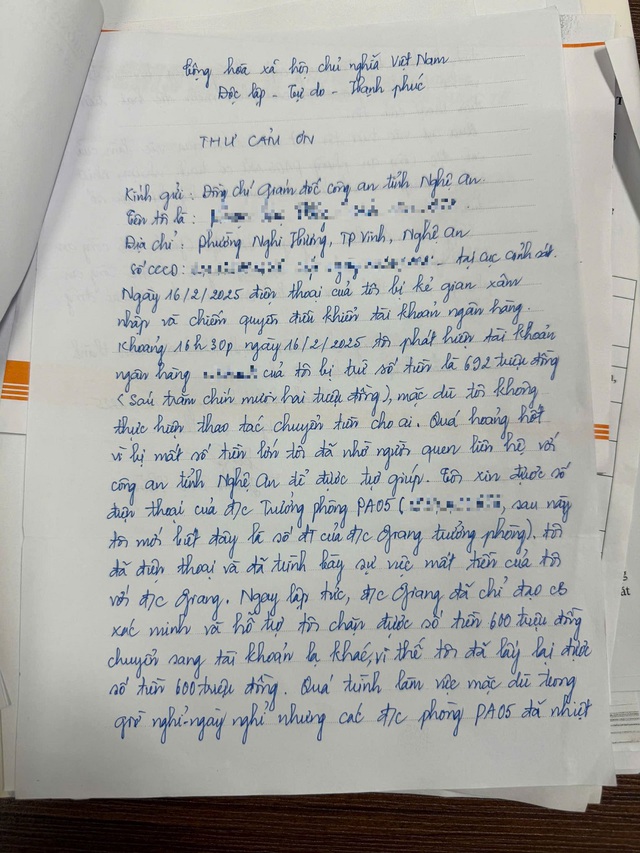 Cộng hòa xã hội chủ nghĩa Việt Nam
Độc lập - Tự do - Hạnh phúc
THƯ CẢM ƠN
Kính gửi: Đồng chí Giám đốc công an tỉnh Nghệ An.
Tên tôi là:
Địa chỉ: Phường Nghi Thương, TP Vinh, Nghệ An
Số CCCD: tại cục cảnh sát.
Ngày 16/2/2025 điện thoại của tôi bị kẻ gian xâm
nhập và chiếm quyền điều khiển tài khoản ngân hàng.
Khoảng 16h30p ngày 16/2/2025 tôi phát hiện tài khoản
ngân hàng của tôi bị trừ số tiền là 692 triệu đồng
(Sáu trăm chín mươi hai triệu đồng), mặc dù tôi không
thực hiện thao tác chuyển tiền cho ai. Quá hoảng hốt
vì bị mất số tiền lớn tôi đã nhờ người quen liên hệ với
công an tỉnh Nghệ An để được trợ giúp. Tôi xin được số
điện thoại của đ/c Trưởng phòng PA05 (, sau này
tôi mới biết đây là số ĐT của đ/c Giang trưởng phòng). Tôi
đã điện thoại và đã trình bày sự việc mất tiền của tôi
với đ/c Giang. Ngay lập tức, đ/c Giang đã chỉ đạo cb
xác minh và hỗ trợ tôi chặn được số tiền 600 triệu đồng
chuyển sang tài khoản lạ khác, vì thế tôi đã lấy lại được
số tiền 600 triệu đồng. Quá trình làm việc mặc dù trong
giờ nghỉ-ngày nghỉ nhưng các đ/c phòng PA05 đã nhiệt